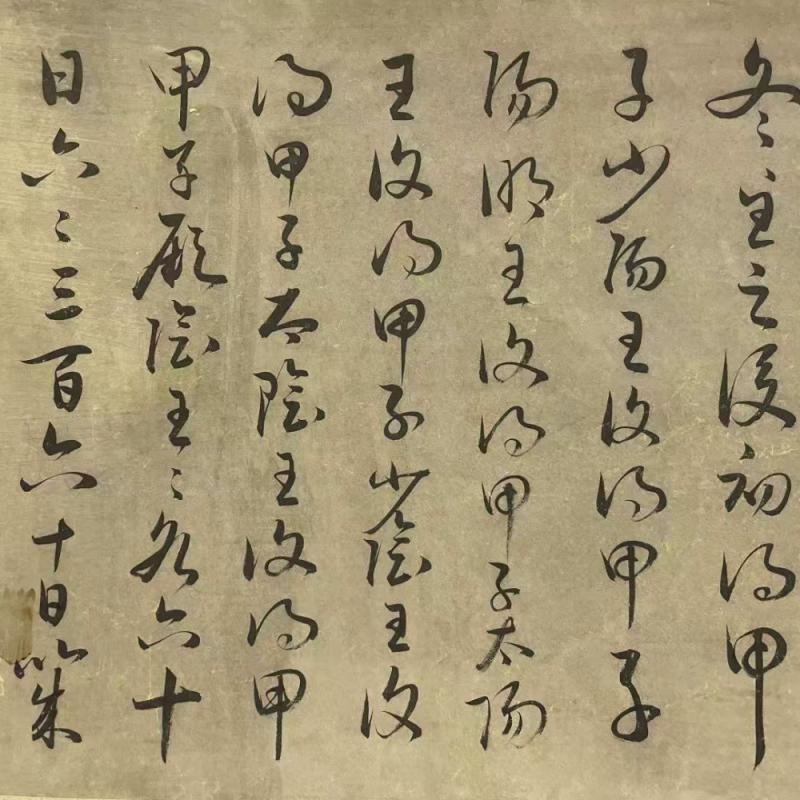 冬至之後初得甲
子少陽王復得甲子
陽明王復得甲子太陽
王復得甲子少陰王復
得甲子太陰王復得甲
甲子厥陰王〻各六十
日六〻三百六十日以成